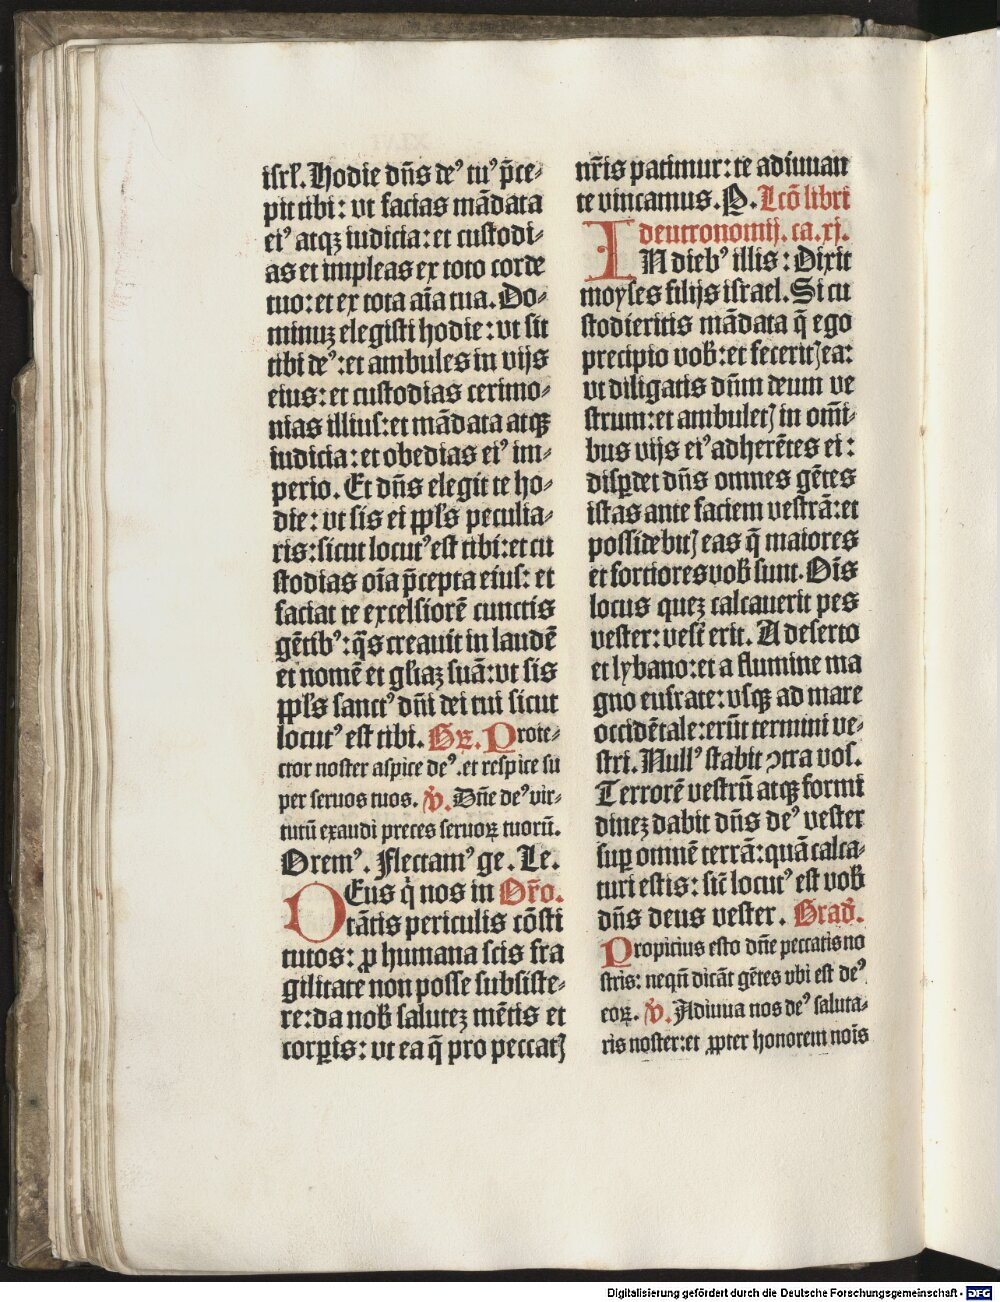 isrl̄. Hodie dn̄s deꝰ tuꝰ p̄ce-
pit tibi: vt facias mādata
eiꝰ atqꝫ iudicia: et custodi-
as et impleas ex toto corde
tuo: et ex tota aīa tua. Do-
minuꝫ elegisti hodie: vt sit
tibi deꝰ: et ambules in vijs
eius: et custodias cerimo-
nias illius: et mādata atqꝫ
iudicia: et obedias eiꝰ im-
perio. Et dn̄s elegit te ho-
die: vt sis ei ppl̄s peculia-
ris: sicut locutꝰ est tibi: et cu
stodias oīa p̄cepta eius: et
faciat te excelsiorē cunctis
gētibꝰ: q̄s creauit in laudē
et nomē et gl̄iaꝫ suā: vt sis
ppl̄s sanctꝰ dn̄i dei tui sicut
locutꝰ est tibi. Gꝝ. Prote-
ctor noster aspice deꝰ. et respice su
per seruos tuos. ℣. Dn̄e deꝰ vir-
tutū exaudi preces seruoꝝ tuorū.
Oremꝰ. Flectamꝰ ge. Le.
DEus q̇ nos in Or̄o.
tātis periculis cōsti
tutos: ꝓ humana scis fra
gilitate non posse subsiste-
re: da nob̄ saluteꝫ mētis et
corꝑis: vt ea q̄ pro peccatꝭ
nr̄is patimur: te adiuuan
te vincamus. P. Lcō libri
deutronomij. ca. xj.
IN diebꝰ illis: Dixit
moyses filijs israel. Si cu
stodieritis mādata q̄ ego
precipio vob̄: et feceritꝭ ea:
vt diligatis dn̄m deum ve
strum: et ambuletꝭ in om̄i-
bus vijs eiꝰ adherētes ei:
disꝑdet dn̄s omnes gētes
istas ante faciem vestrā: et
possidebitꝭ eas q̄ maiores
et fortiores vob̄ sunt. Om̄s
locus queꝫ calcauerit pes
vester: vest̄ erit. A deserto
et lybano: et a flumine ma
gno eufrate: vsqꝫ ad mare
occidētale: erūt termini ve-
stri. Nullꝰ stabit ꝯtra vos.
Terrorē vestrū atqꝫ formi
dineꝫ dabit dn̄s deꝰ vester
suꝑ omnē terrā: quā calca-
turi estis: sic̄ locutꝰ est vob̄
dn̄s deus vester. Grad̄.
Propicius esto dn̄e peccatis no
stris: neqn̄ dicāt gētes vbi est deꝰ
eoꝝ. ℣. Adiuua nos deꝰ saluta-
ris noster: et ꝓpter honorem noīs
Digitalisierung gefördert durch die Deutsche Forschungsgemeinschaft - DFG